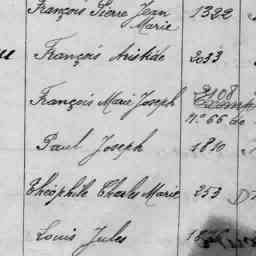 François Pierre Jean 1322
Marie
François Aristide 2033
François Marie Joseph 2108
Exempt
N° 66 de
Paul Joseph 1810
Théophile Charles Marie 253
Louis Jules